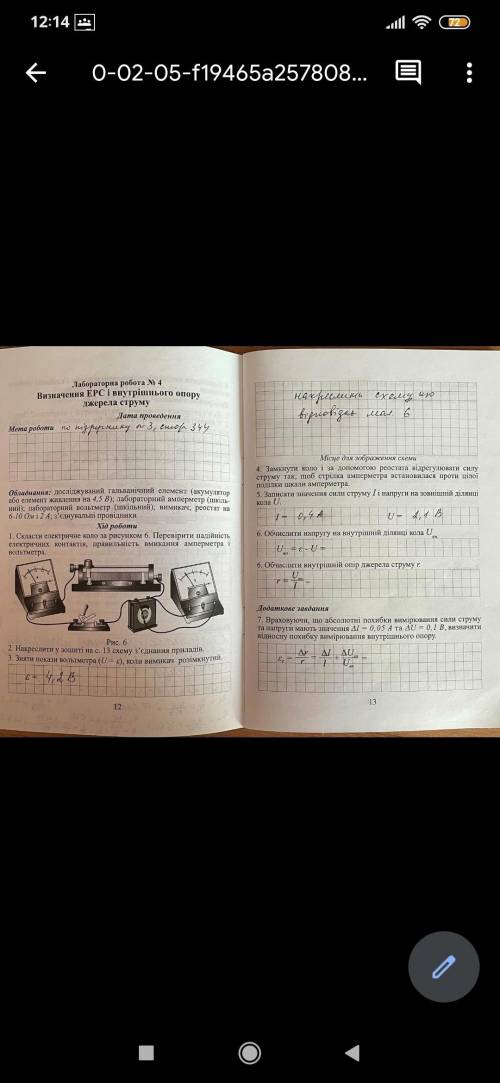 12:14
72
0-02-05-f19465a257808...
Лабораторна робота № 4
Визначення ЕРС і внутрішнього опору
джерела струму
Дата проведення
Мета роботи по підручнику № 3, стор 344
Обладнання: досліджуваний гальванічний елемент (акумулятор
або елемент живлення на 4,5 В); лабораторний амперметр (шкіль-
ний); лабораторний вольтметр (шкільний); вимикач; реостат на
6-10 Ом і 2 А; з'єднувальні провідники.
Хід роботи
1. Скласти електричне коло за рисунком 6. Перевірити надійність
електричних контактів, правильність вмикання амперметра і
вольтметра.
Рис. 6
2. Накреслити у зошиті на с. 13 схему з'єднання приладів.
3. Зняти покази вольтметра (U = ε), коли вимикач розімкнутий.
ε = 4,2 В
12
накреслити схему
відповідає мал. 6
Місце для зображення схеми
4. Замкнути коло і за допомогою реостата відрегулювати силу
струму так, щоб стрілка амперметра встановилася проти цілої
поділки шкали амперметра.
5. Записати значення сили струму I і напруги на зовнішній ділянці
кола U.
I = 0,4 А U = 2,1 В
6. Обчислити напругу на внутрішній ділянці кола Uвн
Uвн = ε – U =
6. Обчислити внутрішній опір джерела струму r.
r = Uвн / I =
Додаткове завдання
7. Враховуючи, що абсолютні похибки вимірювання сили струму
та напруги мають значення ΔI = 0,05 А та ΔU = 0,1 В, визначити
відносну похибку вимірювання внутрішнього опору.
εr = Δr / r = ΔI / I + ΔUвн / Uвн =
13